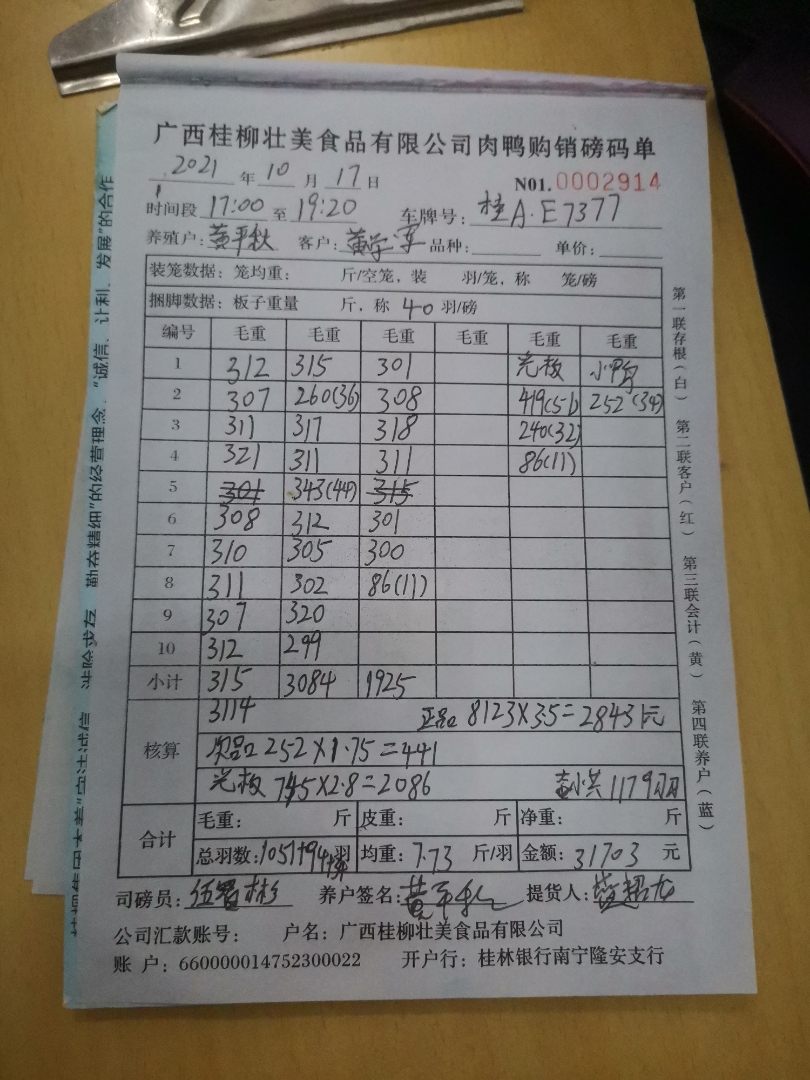 广西桂柳壮美食品有限公司肉鸭购销磅码单
2021 年 10 月 17 日 N01. 0002914
时间段 17:00 至 19:20 车牌号: 桂A·E7377
养殖户: 黄平秋 客户: 黄学军 品种: 单价:
装笼数据: 笼均重: 斤/空笼, 装 羽/笼, 称 笼/磅
捆脚数据: 板子重量 斤, 称 40 羽/磅
编号 毛重 毛重 毛重 毛重 毛重 毛重
1 312 315 301 光板 小鸭
2 307 260(36) 308 419(51) 252(34)
3 311 317 318 240(32)
4 321 311 311 86(11)
5 301 343(44) 315
6 308 312 301
7 310 305 300
8 311 302 86(11)
9 307 320
10 312 299
小计 315 3084 1925
核算 3114 正品 8123×3.5=2843元
次品 252×1.75=441
光板 745×2.8=2086 1179羽
合计 毛重: 斤 皮重: 斤 净重: 斤
总羽数: 1051+94 羽 均重: 7.73 斤/羽 金额: 31703 元
司磅员: 养户签名: 黄平秋 提货人:
公司汇款账号: 户名: 广西桂柳壮美食品有限公司
账 户: 660000014752300022 开户行: 桂林银行南宁隆安支行
第一联存根(白) 第二联客户(红) 第三联会计(黄) 第四联养户(蓝)
勤奋精细”的经营理念、“诚信、让利、发展”的合作